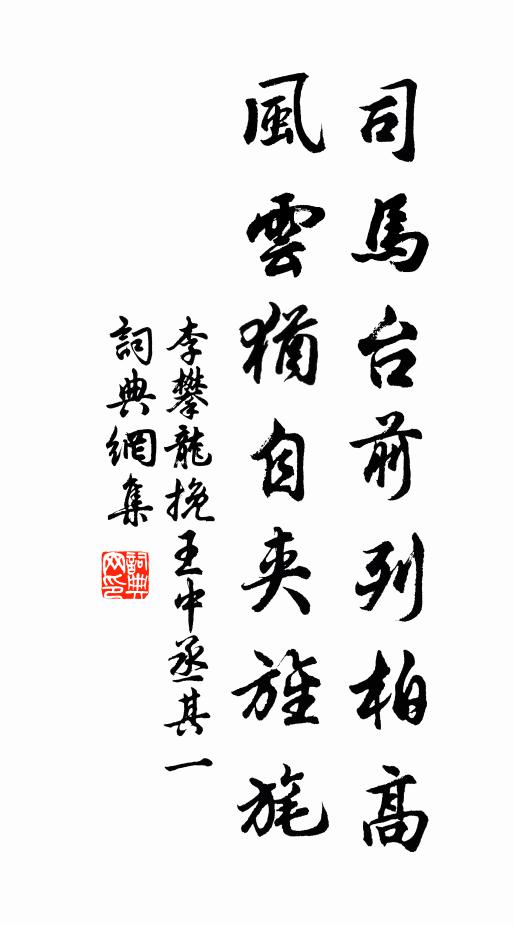 司馬台前列柏高
風雲猶自夾旌旄
李攀龍挽王中丞其一
詞典網集
詞典
网印